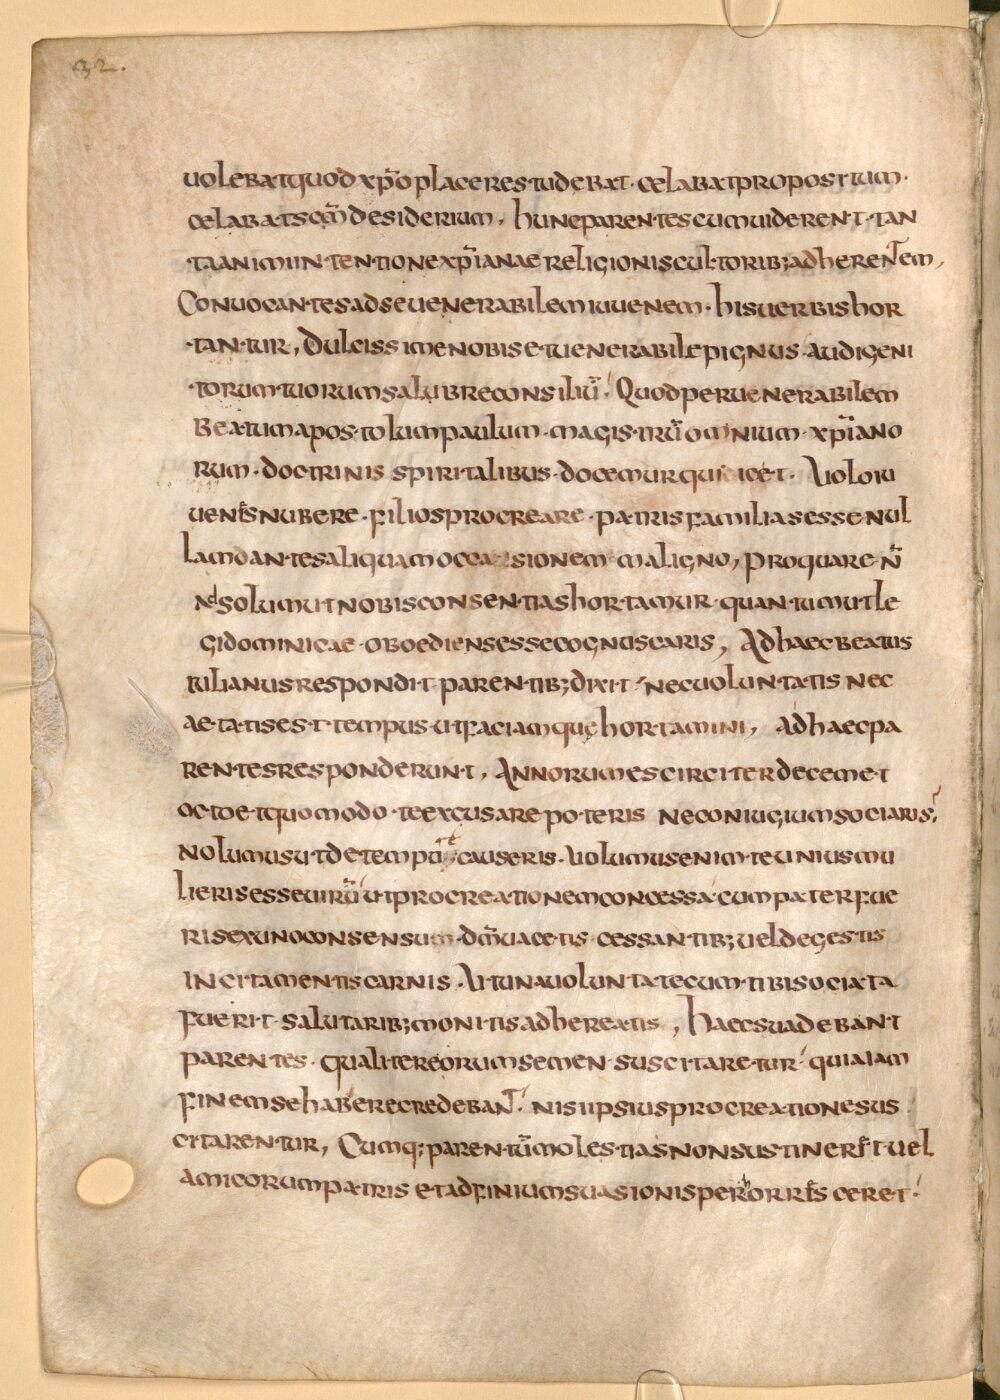 32.
uolebatquod xp̅o placerestudebat· celabatpropositum·
celabatsc̅m desiderium, huncparentescumuiderent· tan
taanimiintentionexp̅ianae religioniscultorib;adherentem,
Conuocantesadseuenerabilemiuuenem· hisuerbishor
tantur, Dulcissimenobisetuenerabilepignus audigeni
torumtuorumsalubreconsiliu̅· Quodperuenerabilem
Beatumapostolumpaulum magistru̅omnium xp̅iano
rum· doctrinis spiritalibus docemurqui dicet· Uoloiu
uenesnubere· filiosprocreare· patrisfamiliasessenul
lamdantesaliquamoccasionem maligno, proquare n̅
n̅solumutnobisconsentiashortamur quantumutle
gidominicae oboediensessecognuscaris, Adhaecbeatus
iulianusrespondit parentib;dixit necuoluntatis nec
aetatisest tempus utfaciamquęhortamini, adhaecpa
rentesresponderunt, Annorumescirciterdecemet
octoetquomodo teexcusarepoteris neconiugiumsociaris,
Nolumusutdetempore causeris· uolumusenimteuniusmu
lierisesseuiru̅ utprocreationemconcessa cumpaterfue
risexunoconsensum d̅m̅uacetis cessantib;ueldegestis
incitamentiscarnis· Utunauoluntatecumtibisociata
fuerit salutarib;monitisadhereatis, haecsuadebant
parentes· qualitereorumsemen suscitaretur quiaiam
finemsehaberecredebant· nisiipsiusprocreationesus
citarentur, Cumq;parentu̅molestiasnonsustineret uel
amicorumpatris etadfiniumsuasionisperhorresceret·